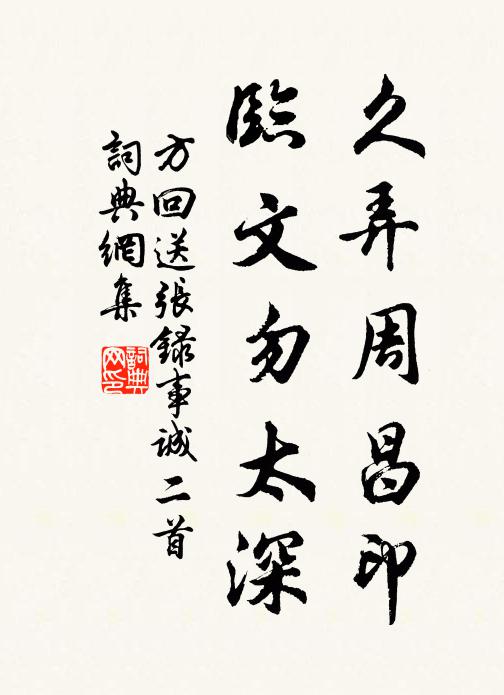 久弄周昌印
臨文勿太深
方回送張錄事誠二首
詞典網集
詞典
网印